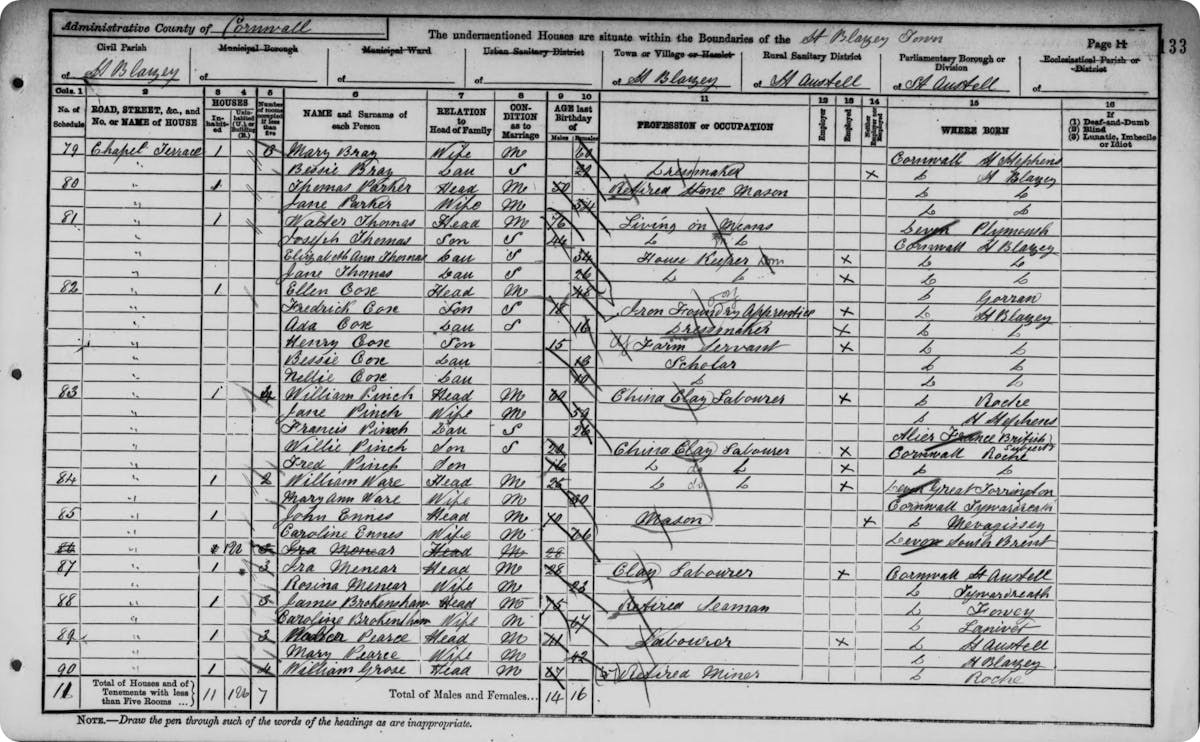 Administrative County of Cornwall
The undermentioned Houses are situate within the Boundaries of the St Blazey Town
Page 11
133
Civil Parish of St Blazey
Municipal Borough of
Municipal Ward of
Urban Sanitary District of
Town or Village or Hamlet of St Blazey
Rural Sanitary District of St Austell
Parliamentary Borough or Division of St Austell
Ecclesiastical Parish or District of
Cols. 1 2 3 4 5 6 7 8 9 10 11 12 13 14 15 16
No. of Schedule
ROAD, STREET, &c., and No. or NAME of HOUSE
HOUSES
Inhabited
Uninhabited (U.) or Building (B.)
Number of rooms occupied if less than five
NAME and Surname of each Person
RELATION to Head of Family
CONDITION as to Marriage
AGE last Birthday of
Males Females
PROFESSION or OCCUPATION
Employer
Employed
Neither Employer nor Employed
WHERE BORN
(1) Deaf-and-Dumb
(2) Blind
(3) Lunatic, Imbecile or Idiot
79 Chapel Terrace 1 3 Mary Bray Wife M Cornwall St Stephens
" Bessie Bray Dau S 29 Dressmaker X Do St Blazey
80 " 1 Thomas Parker Head M Retired Stone Mason Do Do
" Jane Parker Wife M 54 Do Do
81 " 1 Walter Thomas Head M 76 Living on Means Devon Plymouth
" Joseph Thomas Son S 44 Do Do Cornwall St Blazey
" Elizabeth Ann Thomas Dau S 34 House Keeper Dom X Do Do
" Jane Thomas Dau S 26 Do Do X Do Do
82 " 1 Ellen Cox Head M 48 Do Gorran
" Fredrick Cox Son S 18 Iron Foundry Apprentice X Do St Blazey
" Ada Cox Dau S 16 Dressmaker X Do Do
" Henry Cox Son 15 Farm Servant X Do Do
" Bessie Cox Dau 13 Scholar Do Do
" Nellie Cox Dau 10 Do Do Do
83 " 1 4 William Pinch Head M 60 China Clay Labourer X Do Roche
" Jane Pinch Wife M 59 Do St Stephens
" Francis Pinch Dau S 26 France British Subject
" Willie Pinch Son S 20 China Clay Labourer X Cornwall Roche
" Fred Pinch Son 16 Do do Do X Do Do
84 " 1 2 William Ware Head M 25 Do do Do X Devon Great Torrington
" Mary Ann Ware Wife M 30 Cornwall Tywardreath
85 " 1 John Ennes Head M 70 Mason X Do Mevagissey
" Caroline Ennes Wife M 76 Devon South Brent
86 " 1 Ira Menear Head M 28
87 " 1 3 Ira Menear Head M 28 Clay Labourer X Cornwall St Austell
" Rosina Menear Wife M 23 Do Tywardreath
88 " 1 3 James Brokenshaw Head M 75 Retired Seaman Do Fowey
" Caroline Brokenshaw Wife M 67 Do Lanivet
89 " 1 3 Pearce Head M 41 Labourer X Do St Austell
" Mary Pearce Wife M 42 Do St Blazey
90 " 1 4 William Grose Head M 57 Retired Miner Do Roche
11 Total of Houses and of Tenements with less than Five Rooms ... 11 7 Total of Males and Females... 14 16
NOTE.—Draw the pen through such of the words of the headings as are inappropriate.